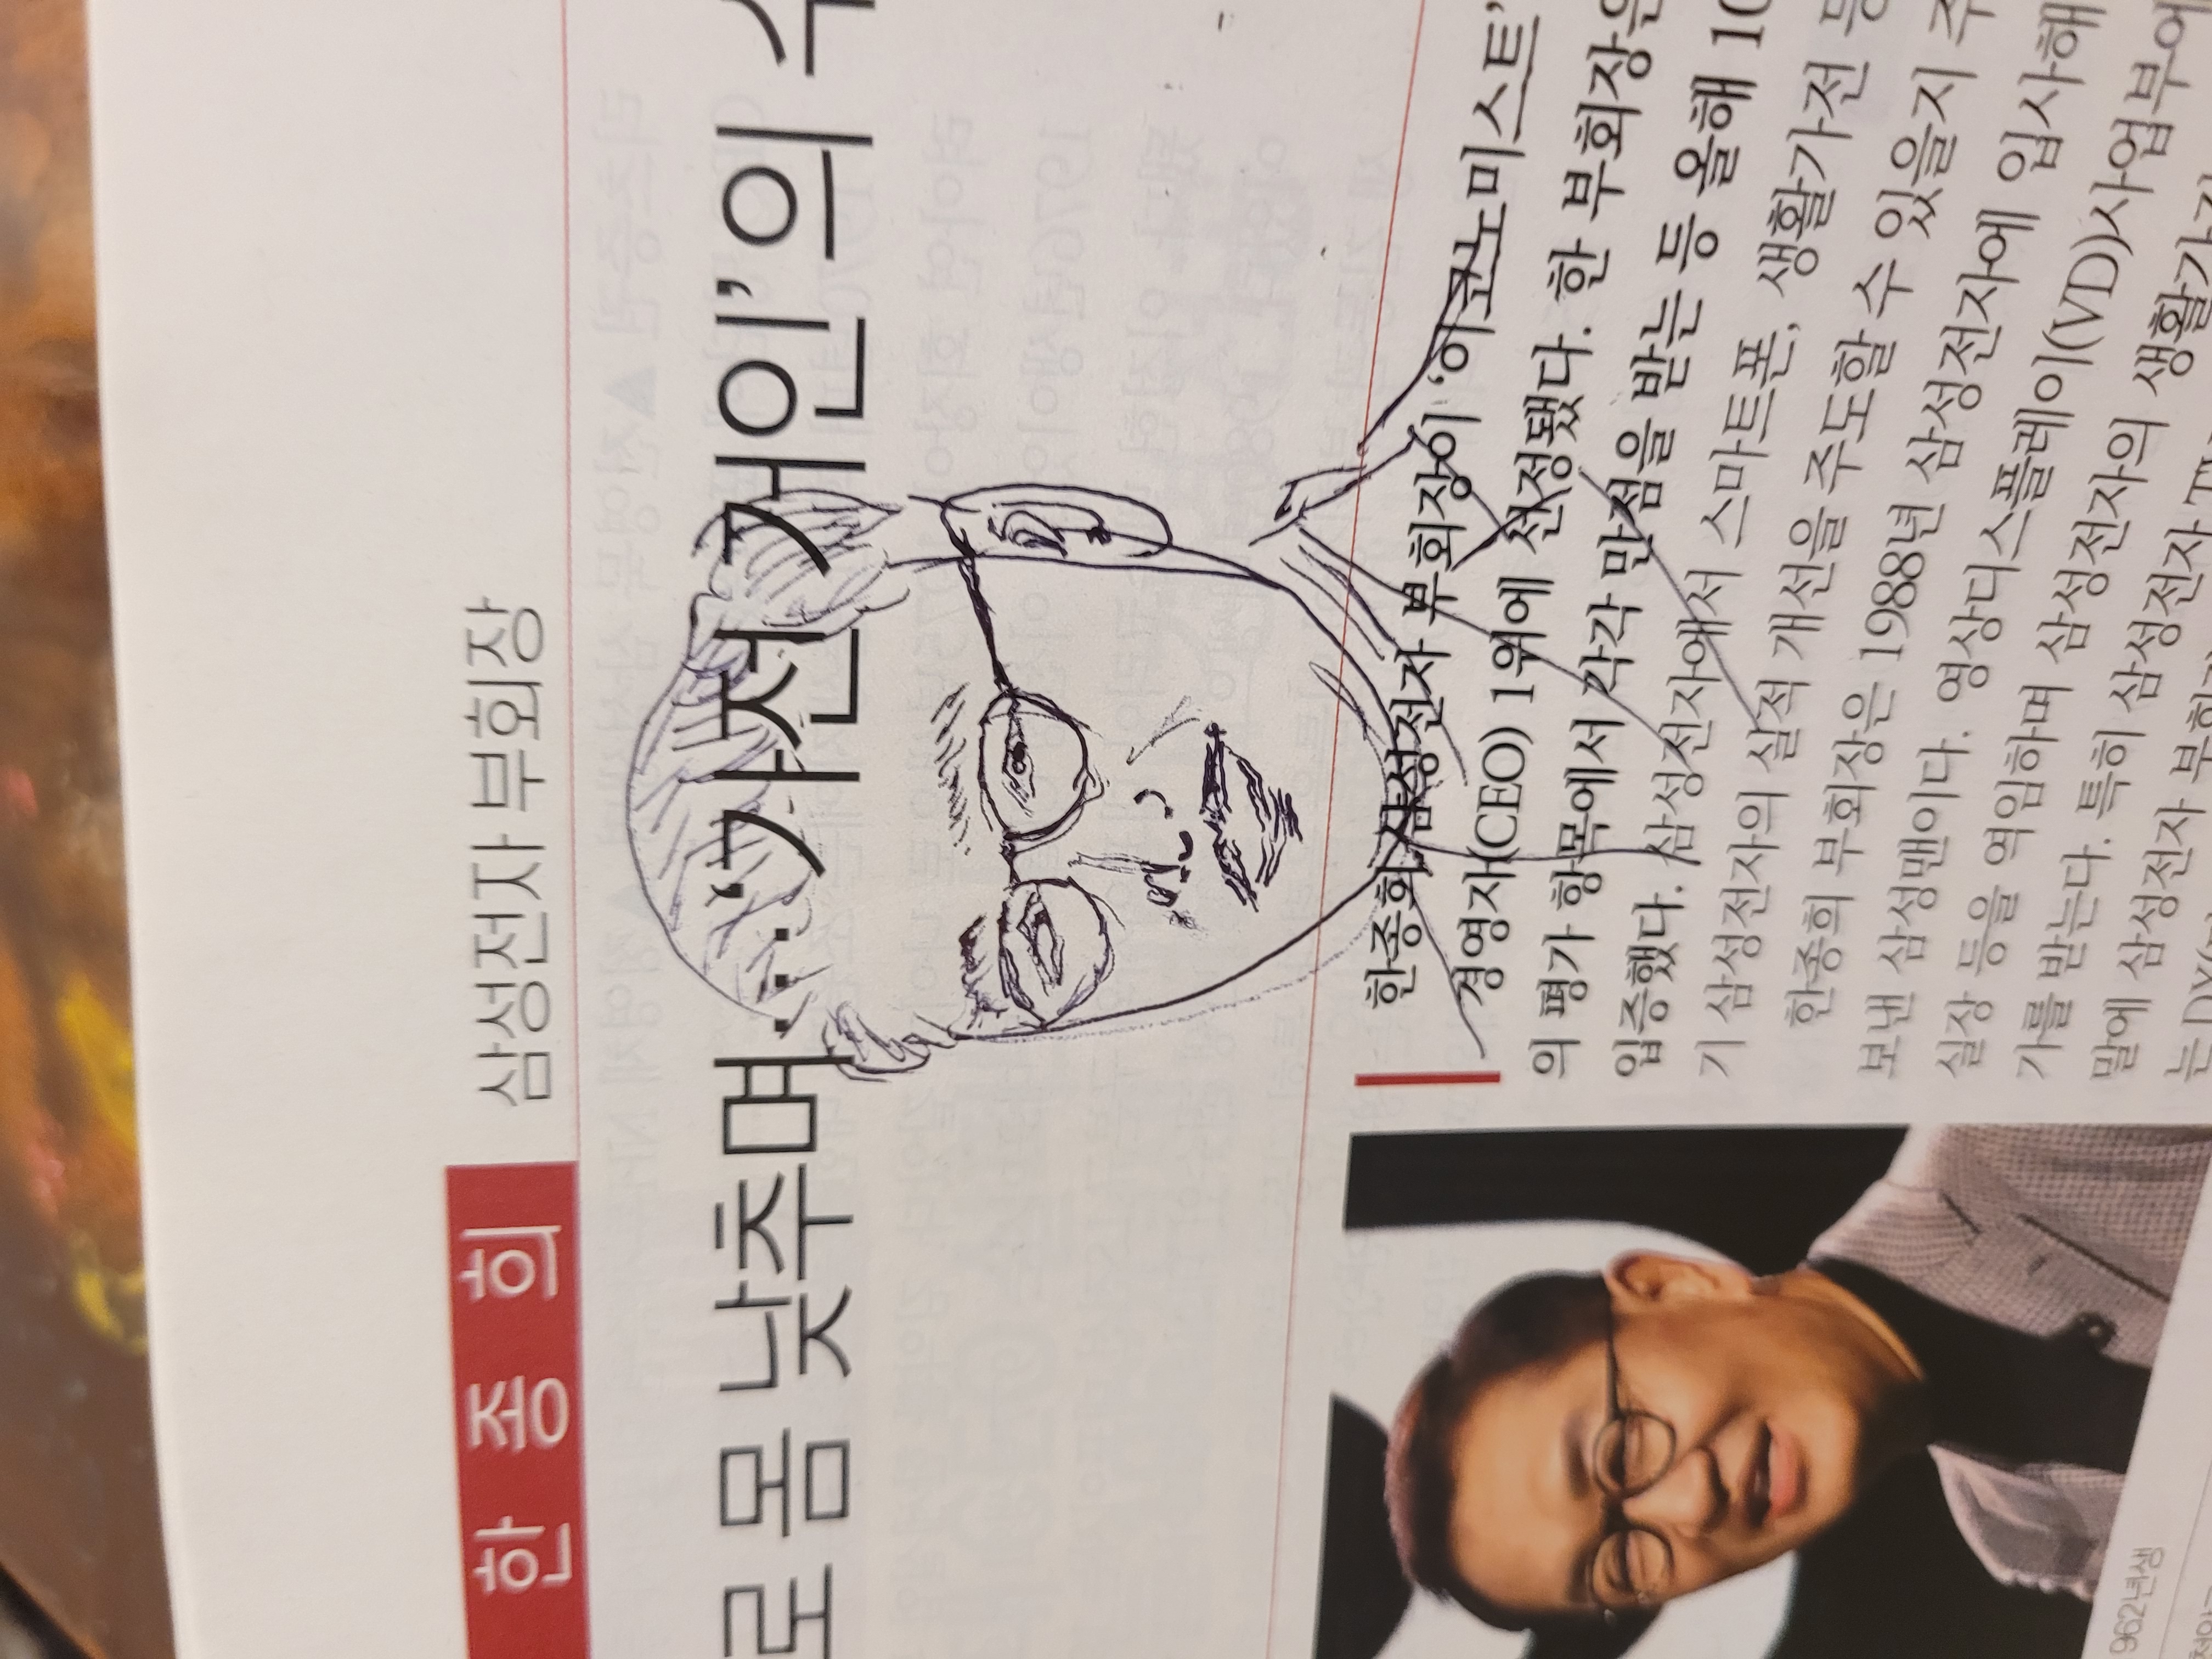 한종희
삼성전자 부회장
로 몸 낮추며…‘가전 거인’의
한종희 삼성전자 부회장이 ‘이코노미스트’
경영자(CEO) 1위에 선정됐다. 한 부회장은
의 평가 항목에서 각각 만점을 받는 등 올해 10
입증했다. 삼성전자에서 스마트폰, 생활가전 등
기 삼성전자의 실적 개선을 주도할 수 있을지 주
한종희 부회장은 1988년 삼성전자에 입사해
보낸 삼성맨이다. 영상디스플레이(VD)사업부에
실장 등을 역임하며 삼성전자의 생활가전
가를 받는다. 특히 삼성전자 TV
말에 삼성전자 부회
는 DX
962년생